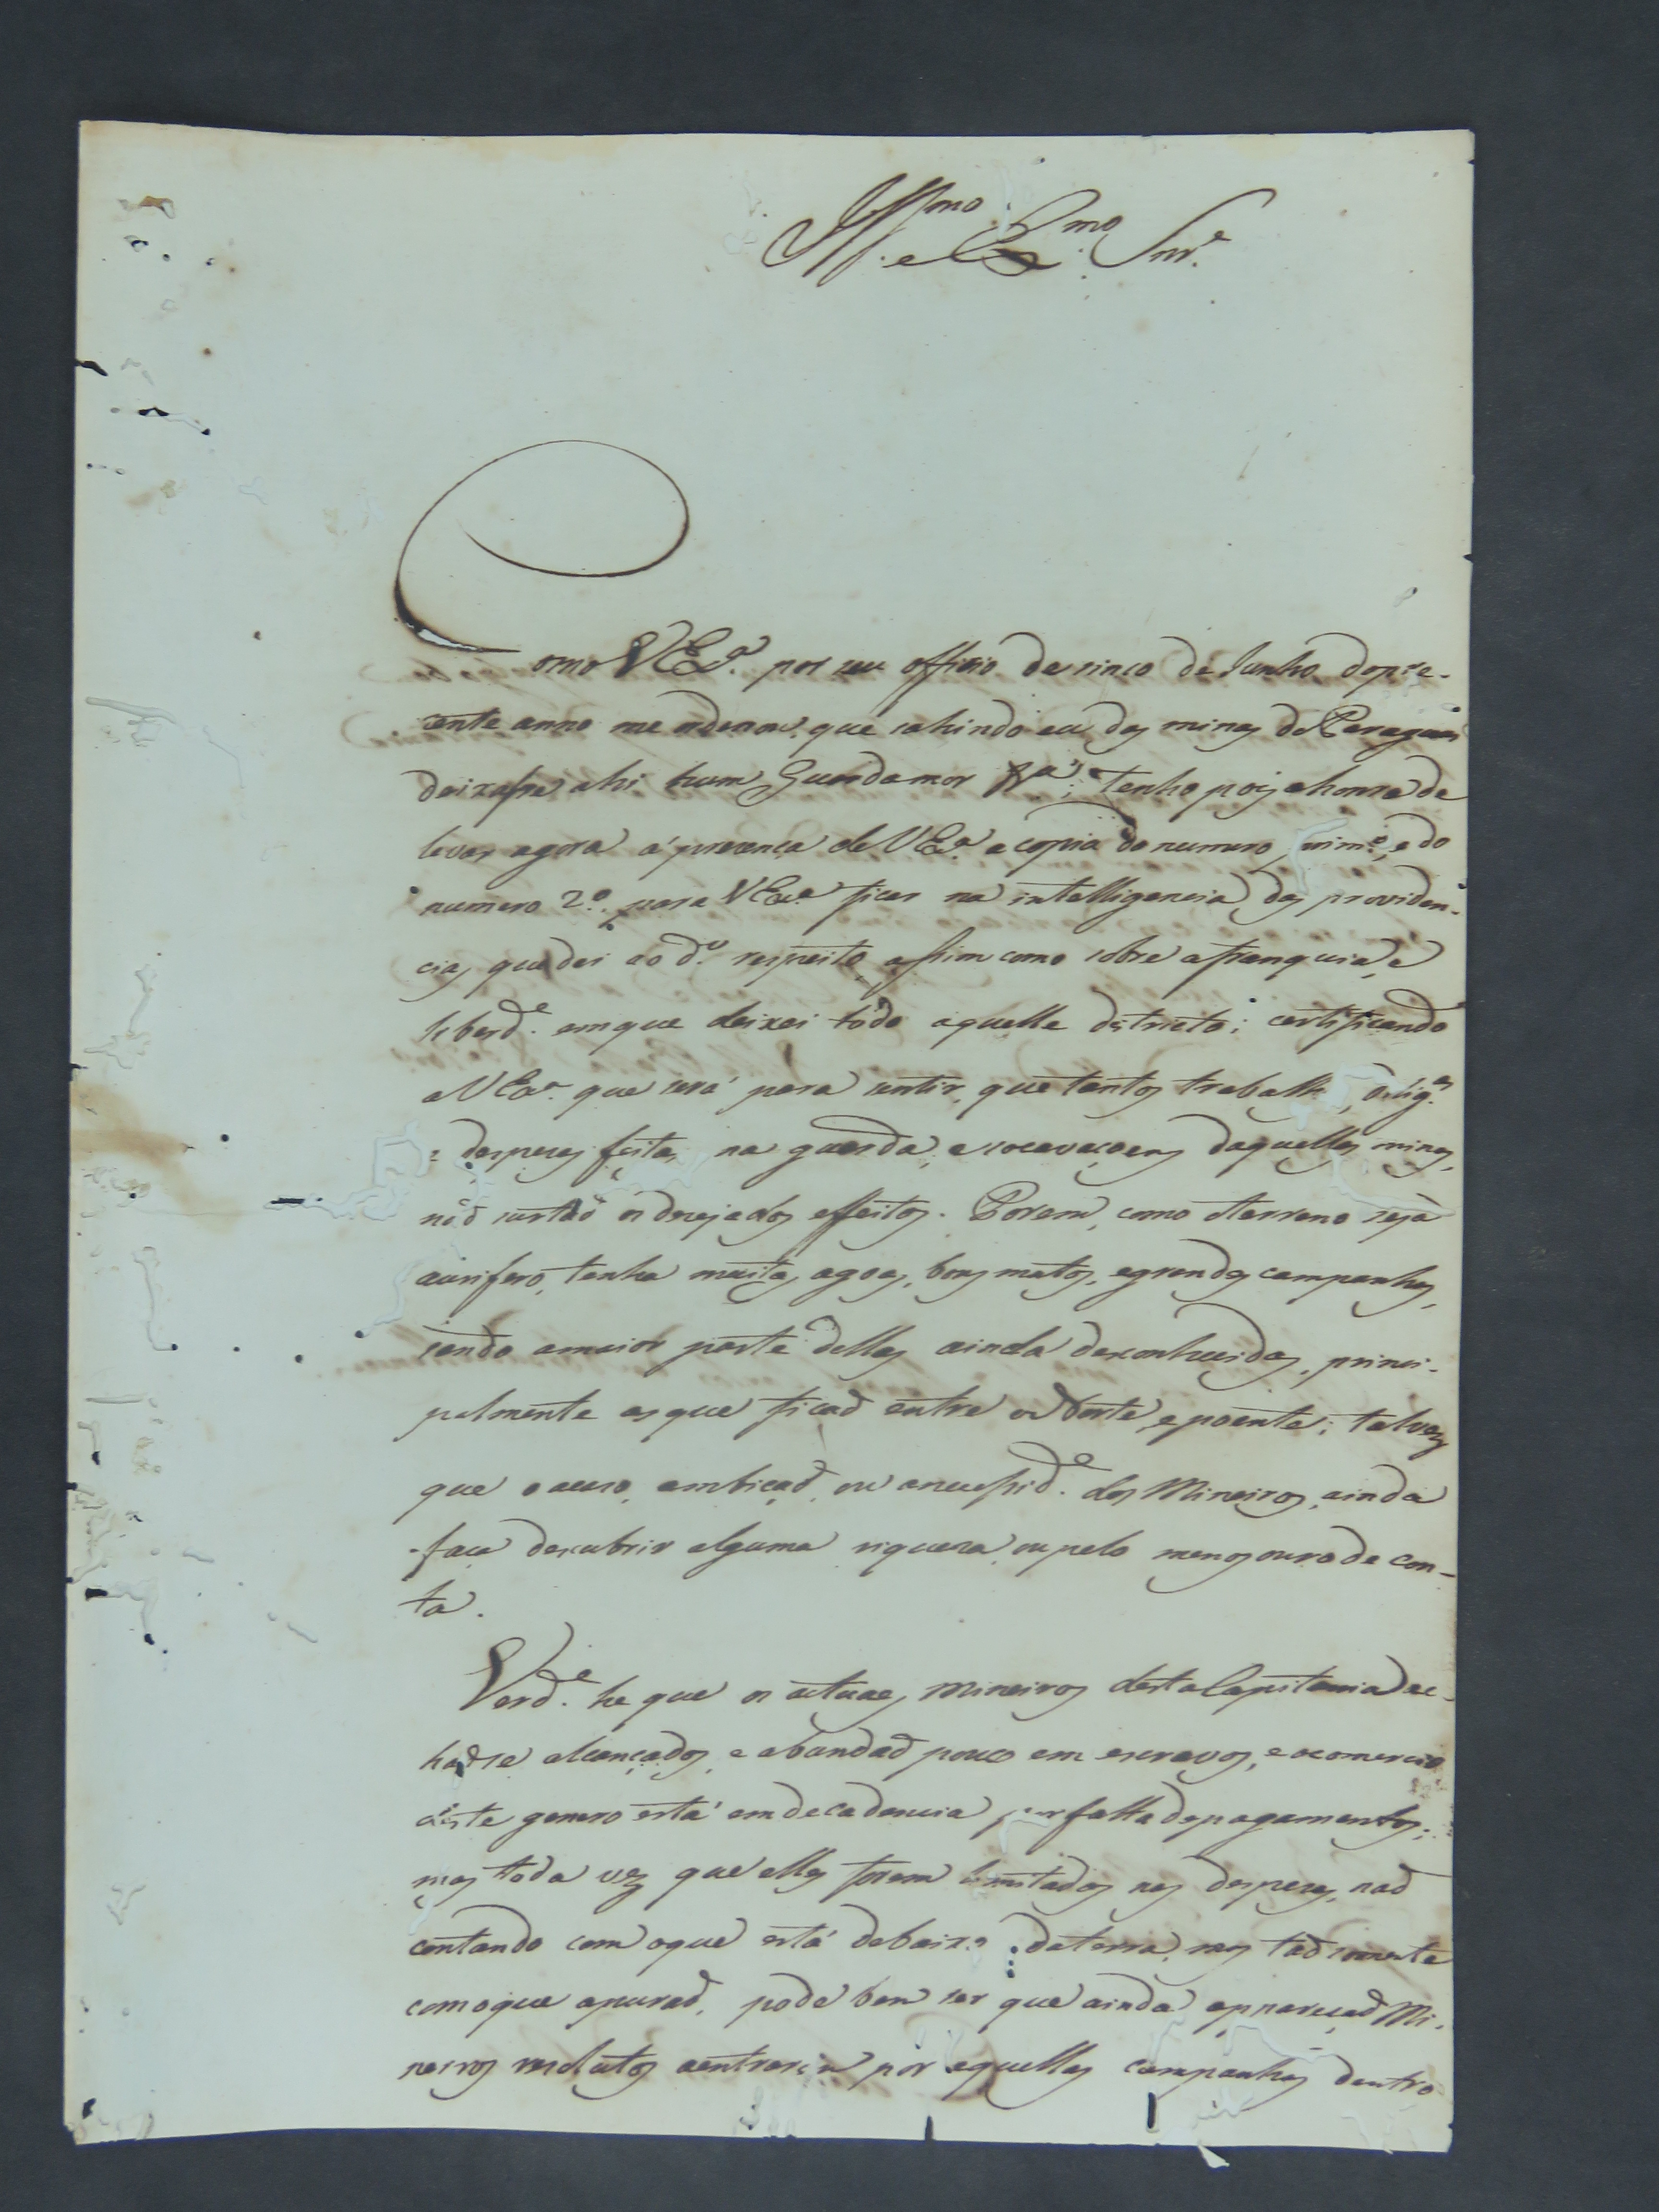 Ill.mo e Ex.mo Snr.e
Como V Ex.a por seu officio de sinco de Junho do pre-
zente anno me ordenou, que sahindo eu das minas do Paraguai
deixasse ahi hum Guardamor &.a; tenho pois a honra de
levar agora á prezença de V Ex.a a copia do numero prim.o, e do
numero 2.o para V Ex.a ficar na intelligencia das providen-
cias que dei ao d.o respeito, assim como sobre a franquia, e
liberd.e em que deixei todo aquelle distrieto; certificando
a V Ex.a que será para sentir, que tantos trabalh, delig.as
e despezas feitas na guarda, e socavaçoens daquellas minas,
não surtaõ os dezejados effeitos. Porem, como o terreno seja
aurifero, tenha muitas agoas, bons matos, e grandes campanhas,
sendo a maior parte dellas ainda desconhecidas, princi-
palmente as que ficaõ entre o Norte, e poente; talves
que o acaso, ambiçaõ, ou a necessid.e dos Mineiros, ainda
faça descubrir alguma riqueza, ou pelo menos ouro de con-
ta.
Verd.e he que os actuaes Mineiros desta Capitania ac-
haõse alcançados, e abundaõ pouco em escravos, e o comercio
deste genero está em decadencia por falta de pagamentos;
mas toda vez que elles forem limitados nas despezas, naõ
contando com o que está debaixo da terra, mas taõ somente
com o que apuraõ, pode bem ser que ainda appareçaõ Mi-
neiros resolutos a entrarem por aquellas campanhas dentro